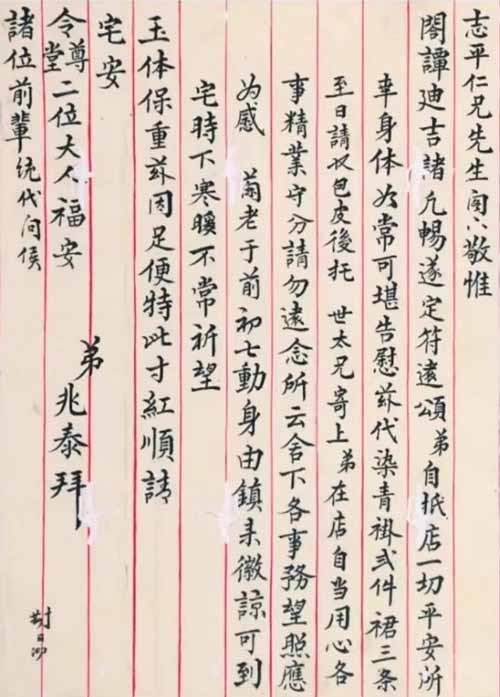 志平仁兄先生閣下敬惟
閤譚廸吉諸凢暢遂定符遠頌 弟自抵店一切平安所
幸身体如常可堪告慰茲代染青褂弍件裙三条
至日請収包皮後托 世太兄寄上 弟在店自当用心各
事精業守分請勿遠念所云舍下各事務望照應
为感 蘭老于前初七動身由鎮来徽諒可到
宅時下寒暖不常祈望
玉体保重茲因足便特此寸紅順請
宅安
令尊堂二位大人福安
諸位前輩统代问候
弟 兆泰拜